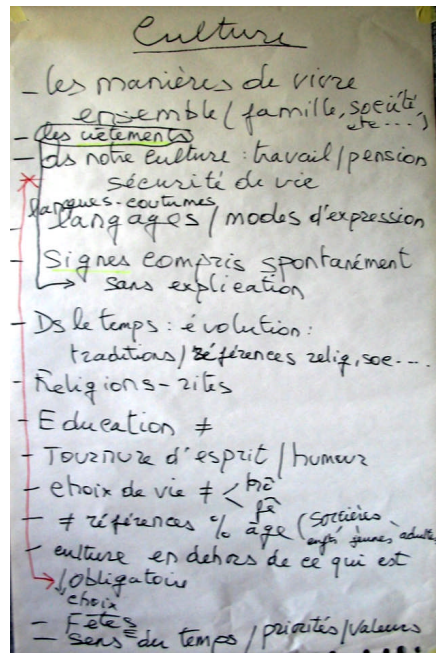 Culture
- les manières de vivre
ensemble (famille, société
etc....)
- les vêtements
- ds notre culture : travail/pension
sécurité de vie
langues-coutumes
langages/modes d'expression
- Signes compris spontanément
→ sans explication
- Ds le temps : évolution :
traditions/références relig, soc....
- Religions-rites
- Education ≠
- Tournure d'esprit/humeur
- choix de vie ≠ <
- ≠ références % âge (sorties
jeunes, adultes
- culture en dehors de ce qui est
obligatoire
choix
- Fêtes
- Sens du temps/priorités/valeurs